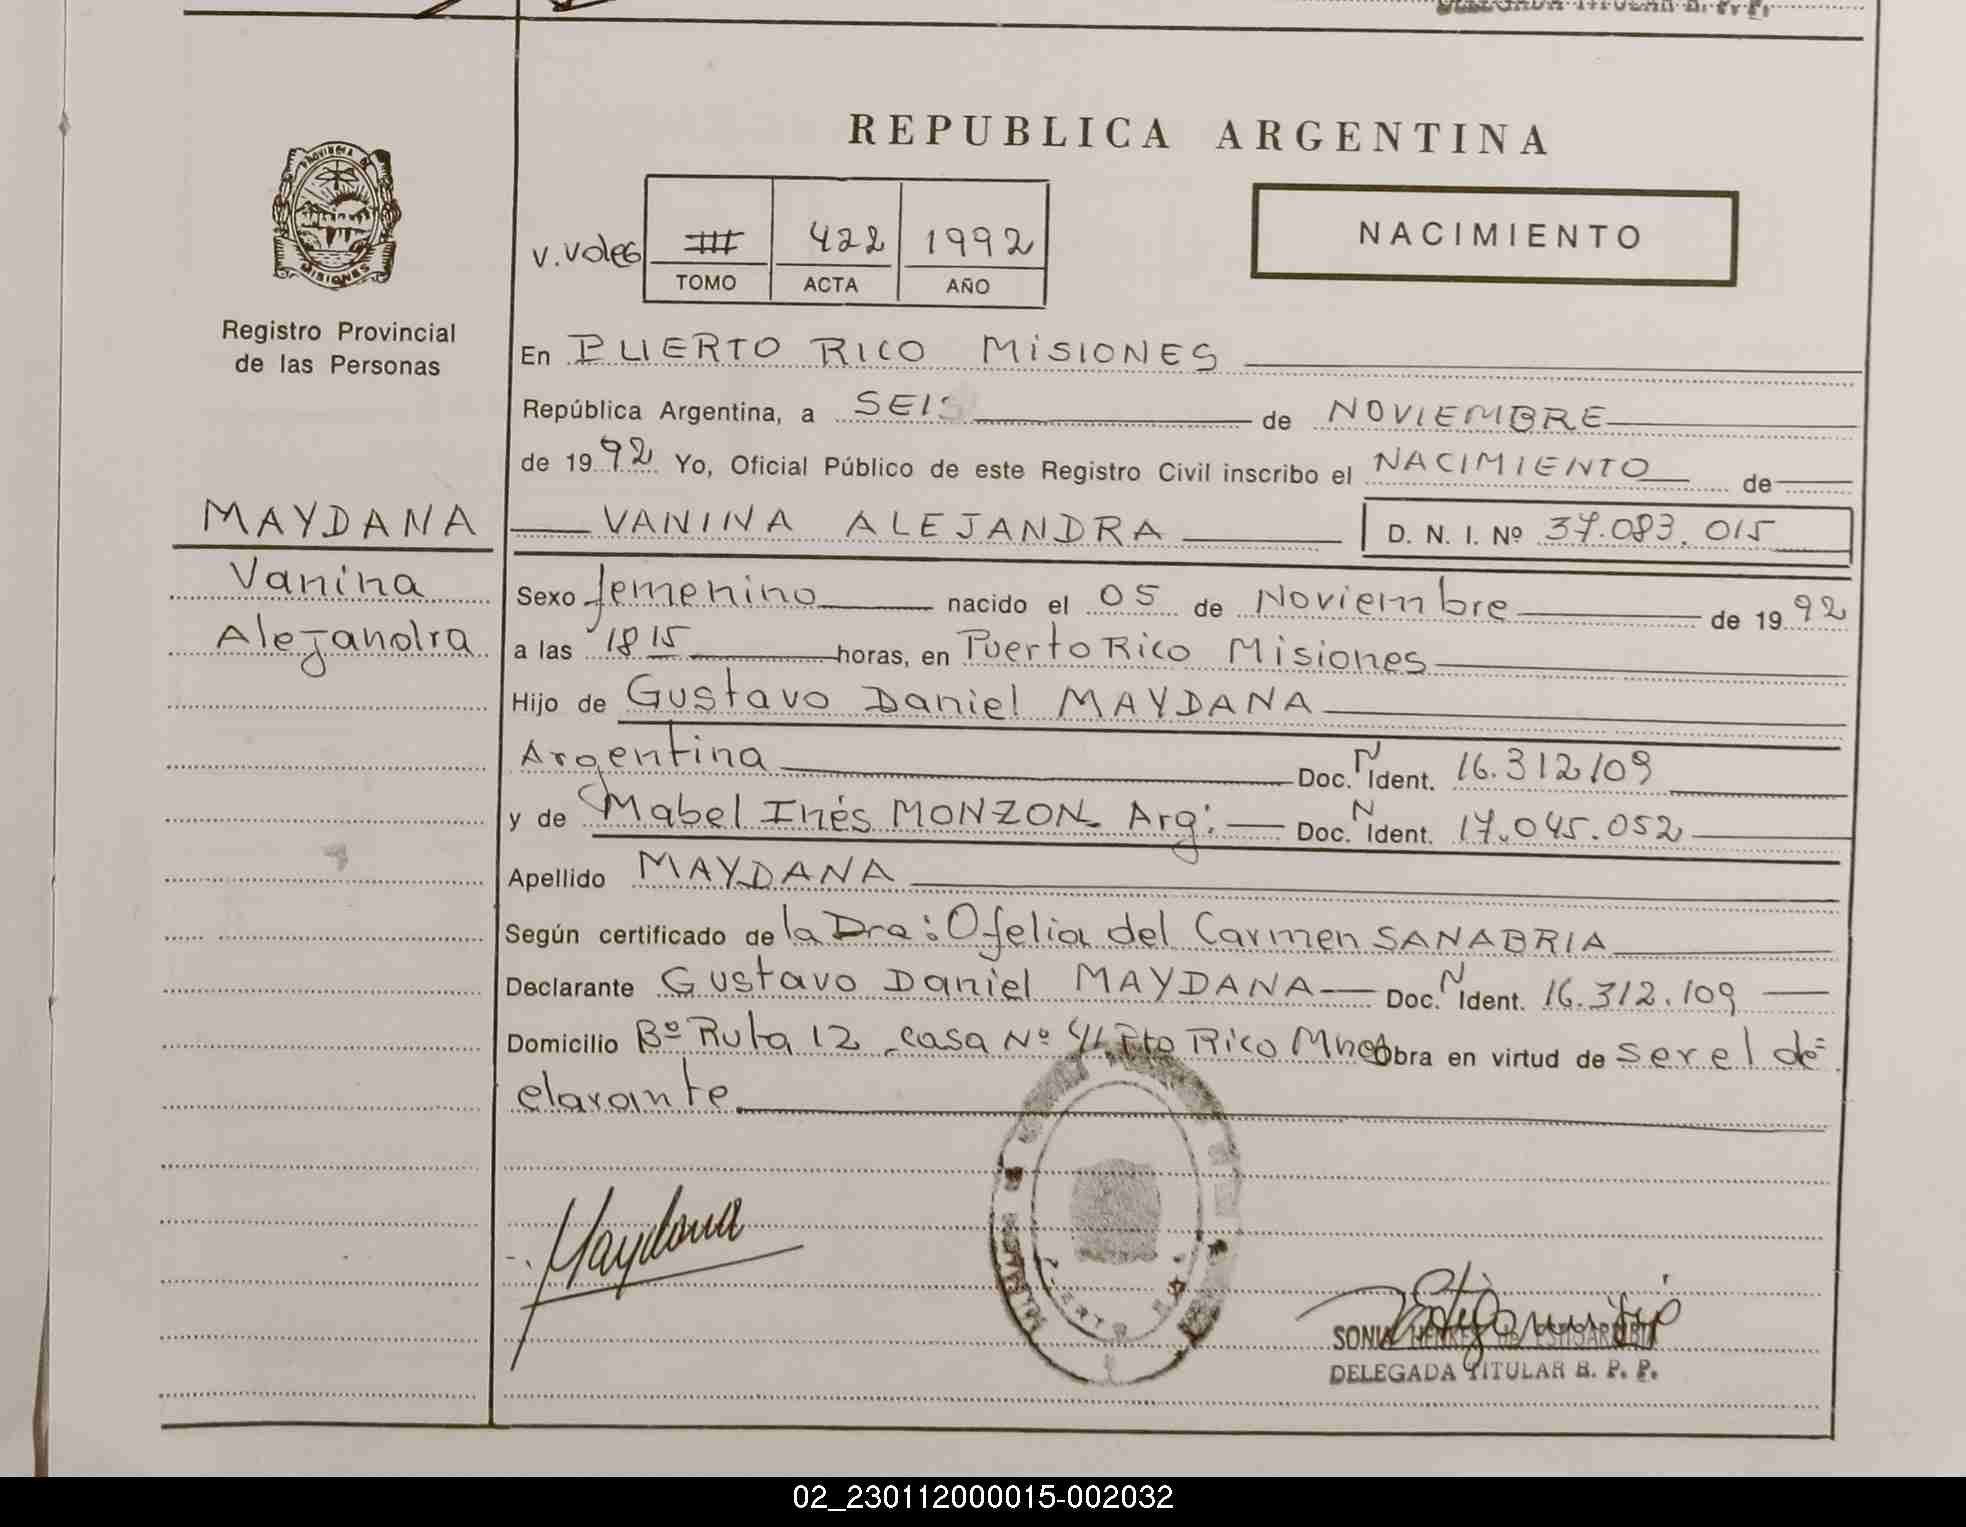 DELEGADA TITULAR B. P. P.
REPUBLICA ARGENTINA
PROVINCIA DE
MISIONES
Registro Provincial
de las Personas
V. Voles
III 422 1992
TOMO ACTA AÑO
NACIMIENTO
En PUERTO RICO MISIONES
República Argentina, a SEIS de NOVIEMBRE
de 1992 Yo, Oficial Público de este Registro Civil inscribo el NACIMIENTO de
MAYDANA
VANINA ALEJANDRA D. N. I. Nº 37.083.015
Vanina
Alejandra
Sexo femenino nacido el 05 de Noviembre de 1992
a las 18 15 horas, en Puerto Rico Misiones
Hijo de Gustavo Daniel MAYDANA
Argentina Doc. N Ident. 16.312109
y de Mabel Inés MONZON Arg: Doc. N Ident. 17.045.052
Apellido MAYDANA
Según certificado de la Dra: Ofelia del Carmen SANABRIA
Declarante Gustavo Daniel MAYDANA Doc. N Ident. 16.312.109
Domicilio Bº Ruta 12 casa Nº 41 Pto Rico Mnes Obra en virtud de ser el de=
clarante
Maydana
SONIA
DELEGADA TITULAR B. P. P.
02_230112000015-002032